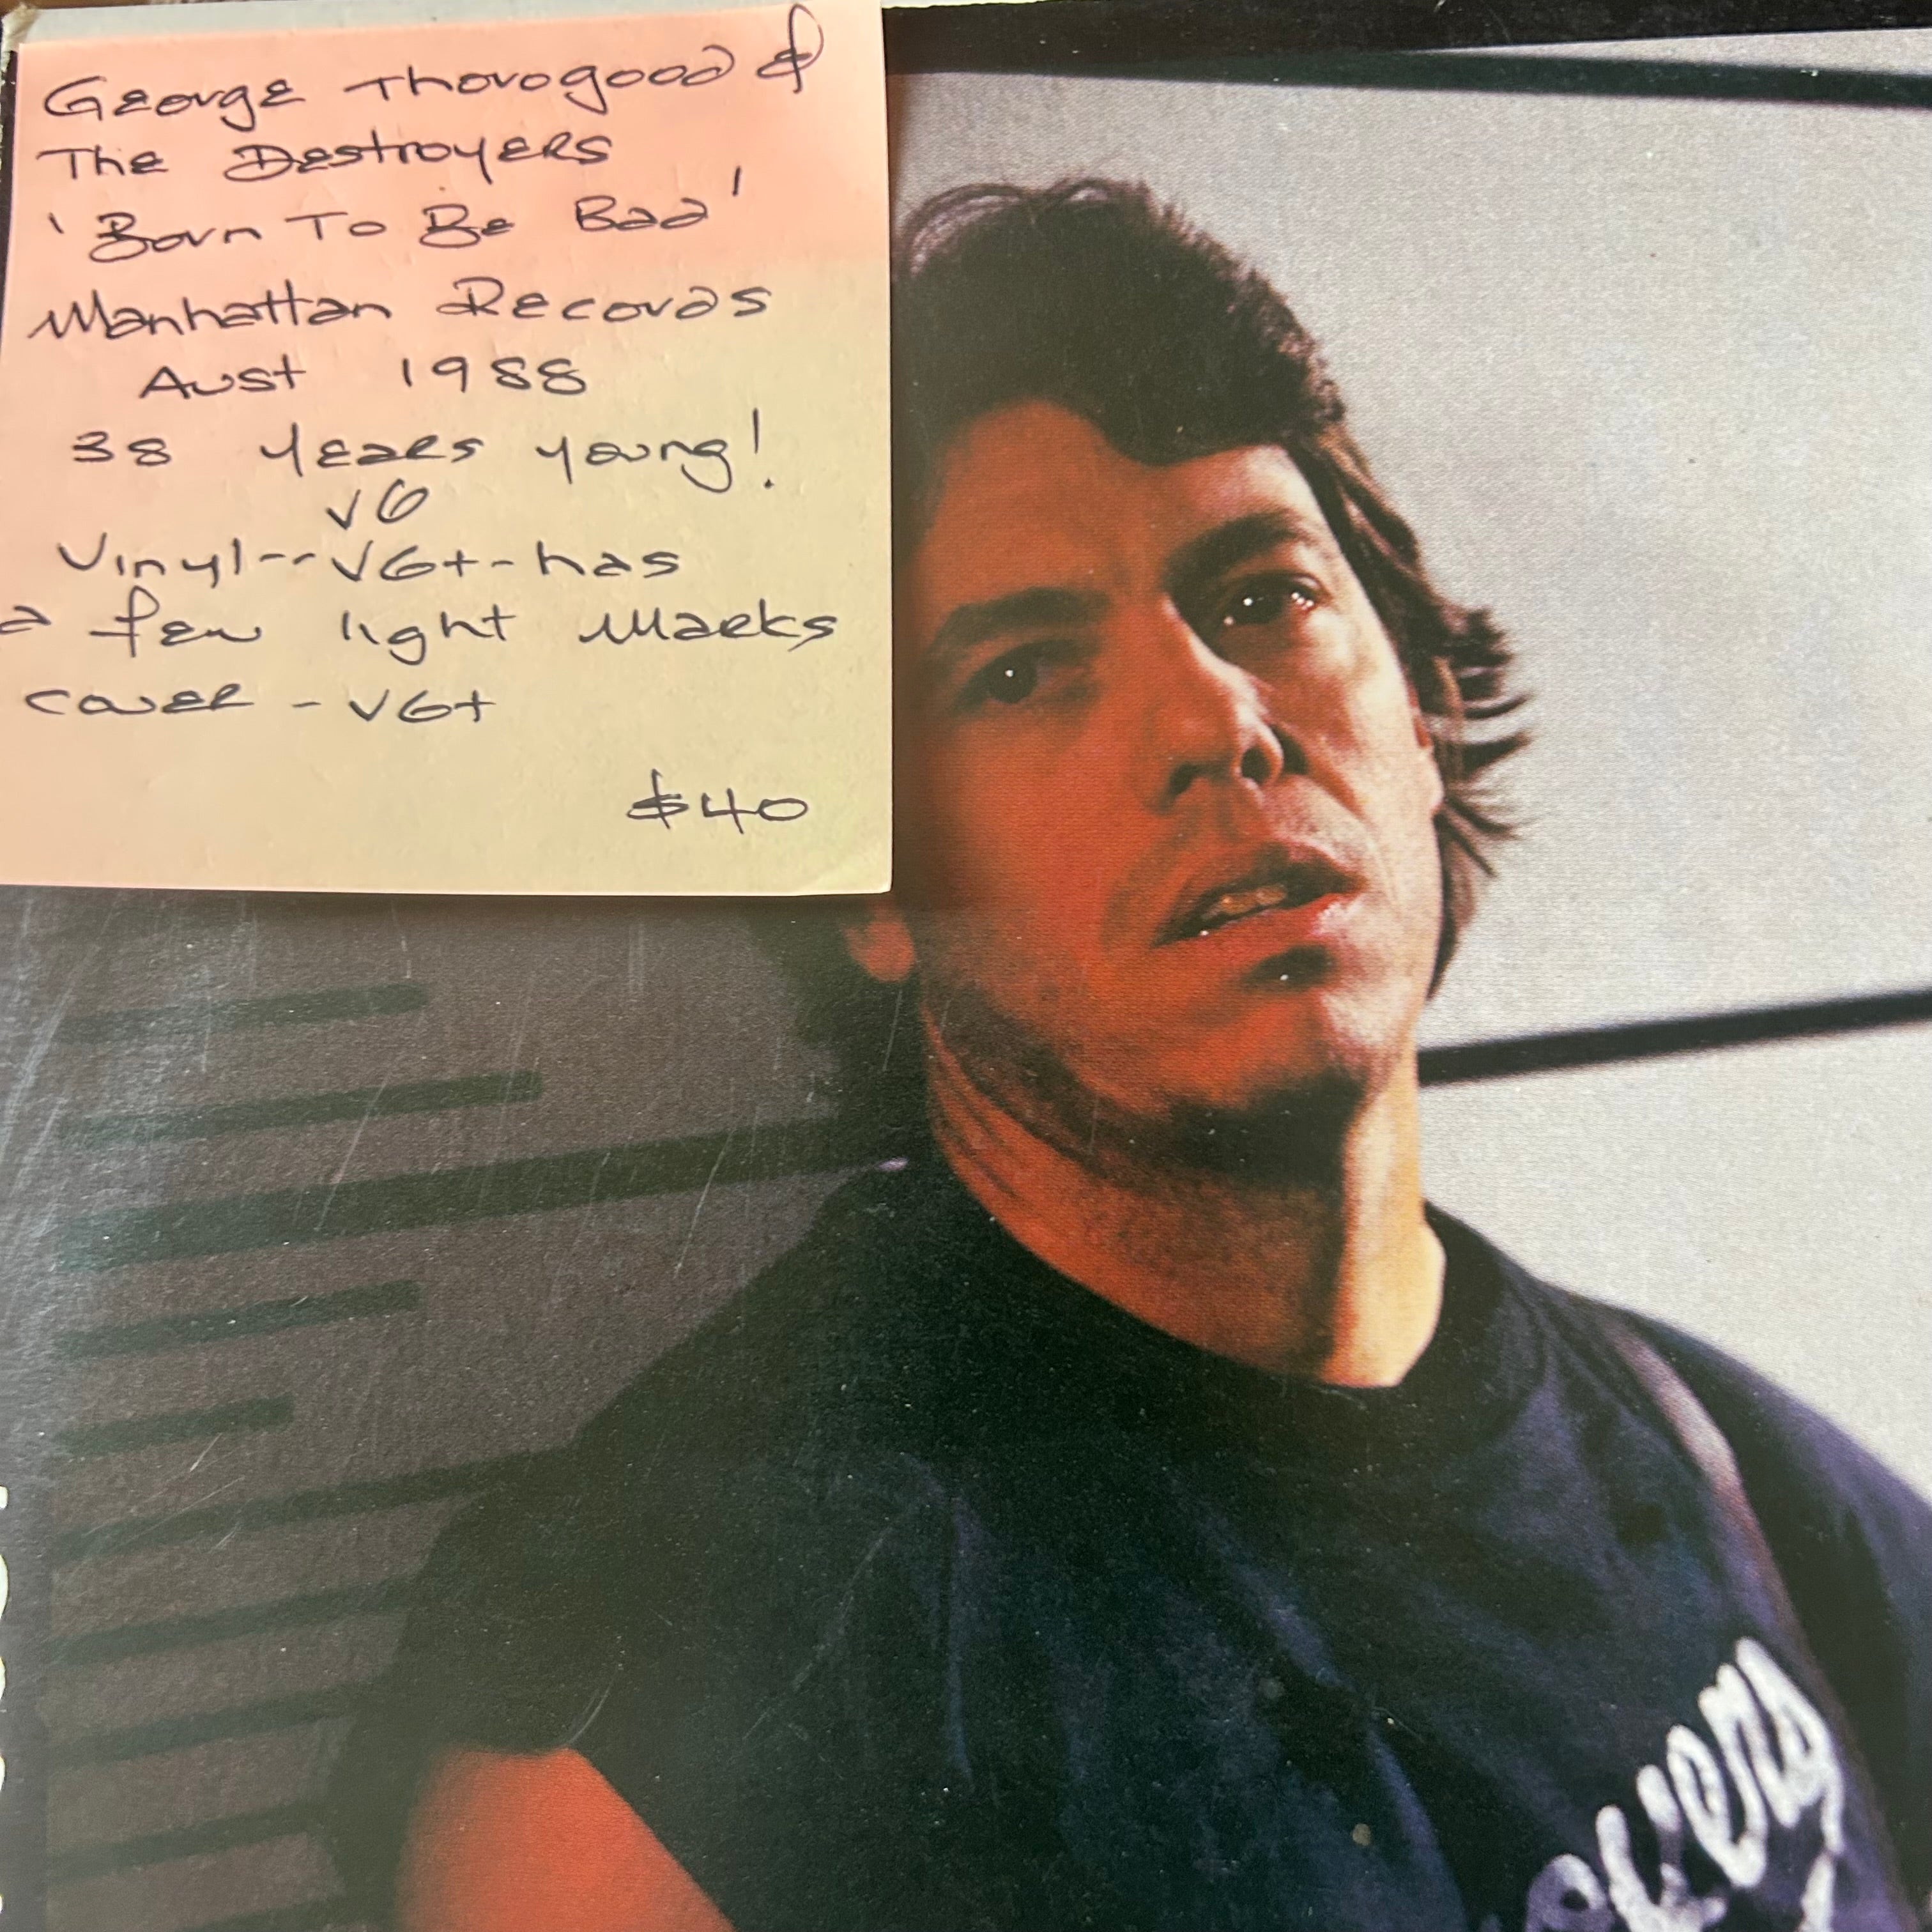 George Thorogood &
The Destroyers
'Born To Be Bad'
Manhattan Records
Aust 1988
38 years young!
VG
Vinyl -- VG+ - has
a few light marks
cover - VG+
$40